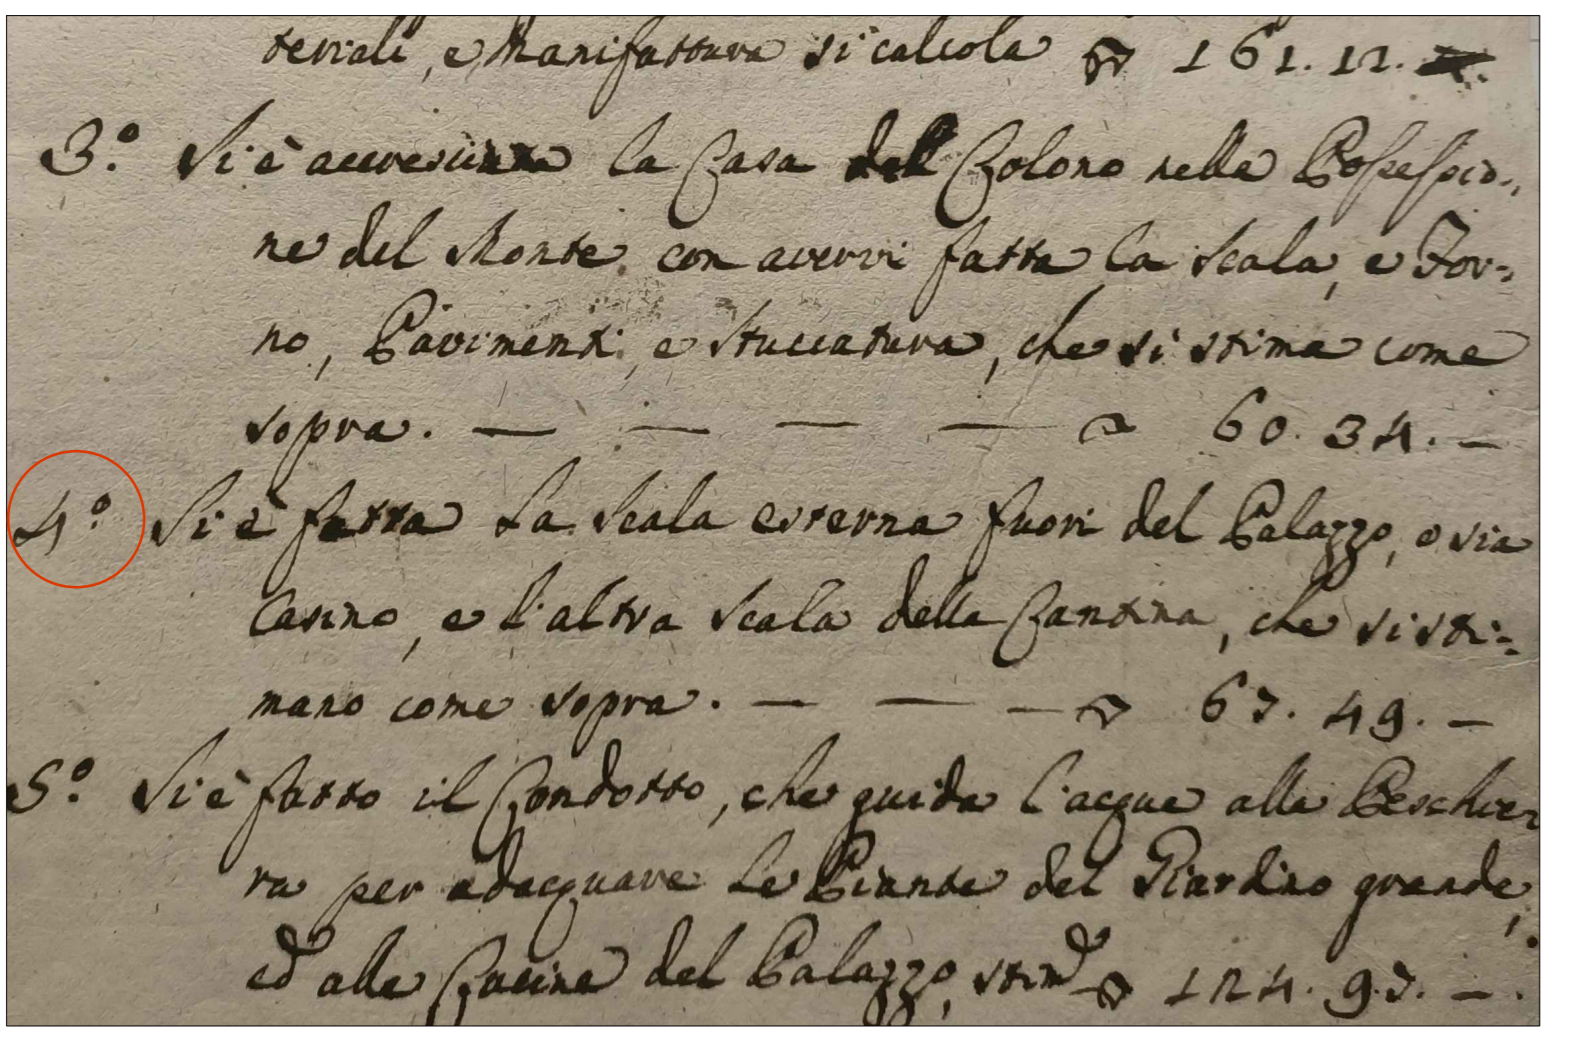 teriali, e Manifattura si calcola ▽ 161. 12.
3.° Si è accresciuta la Casa del Colono nella Possessio-
ne del Monte con avervi fatta la Scala, e For-
no, Pavimenti, e Stuccatura, che si stima come
sopra. — — — — ▽ 60. 34. —
4° Si è fatta La Scala esterna fuori del Palazzo, o sia
Casino, e l'altra Scala della Cantina, che si sti-
mano come sopra. — — — ▽ 67. 49. —
5.° Si è fatto il Condotto, che guida l'acque alla Peschie-
ra per adacquare Le Piante del Giardino grande,
ed alle Cucine del Palazzo, stim.^ ▽ 124. 97. —.